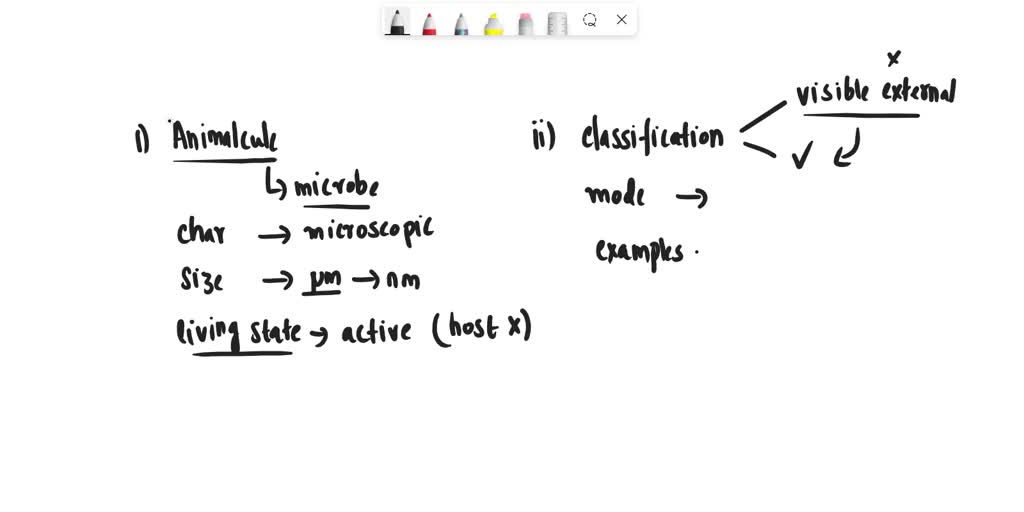 i) Animalcule
↳ microbe
char → microscopic
size → µm → nm
living state → active (host x)
x
visible external
ii) classification
✓
mode →
examples .